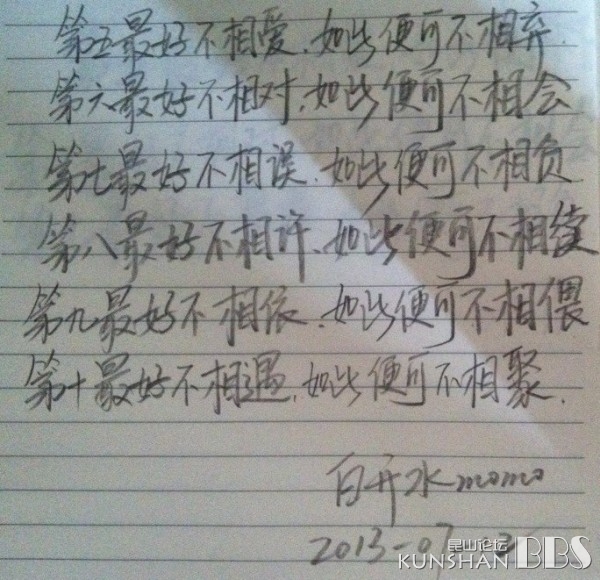 第五最好不相爱.如此便可不相弃.
第六最好不相对.如此便可不相会
第七最好不相误.如此便可不相负
第八最好不相许.如此便可不相续
第九最好不相依.如此便可不相偎
第十最好不相遇.如此便可不相聚.
白开水momo
2013-07
昆山论坛
KUNSHAN BBS